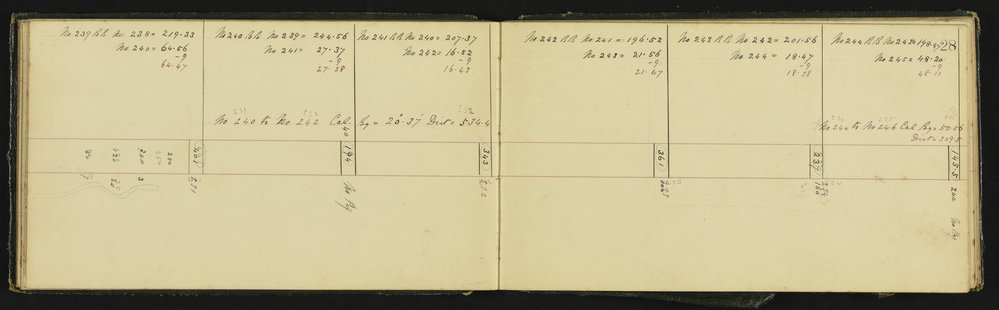 28
No 239 BB No 238 = 219.33
No 240 = 64.56
-9
64.47
No 240 BB No 239 = 244.56
No 241 = 27.37
-9
27.28
No 241 BB No 240 = 207.37
No 242 = 16.52
-9
16.43
No 242 BB No 241 = 196.52
No 243 = 21.56
-9
21.47
No 243 BB No 242 = 201.56
No 244 = 18.47
-9
18.38
No 244 BB No 243 = 198.47
No 245 = 48.20
-9
48.11
231 232 232
No 240 to No 242 Cal. Bg = 20°.37' Dist = 534.4
No 244 to No 246 Cal Bg = 50.56
Dist = 309.5
200
250
194
40
343
361
237
145.5
3
No Pg
200
160
No Pg